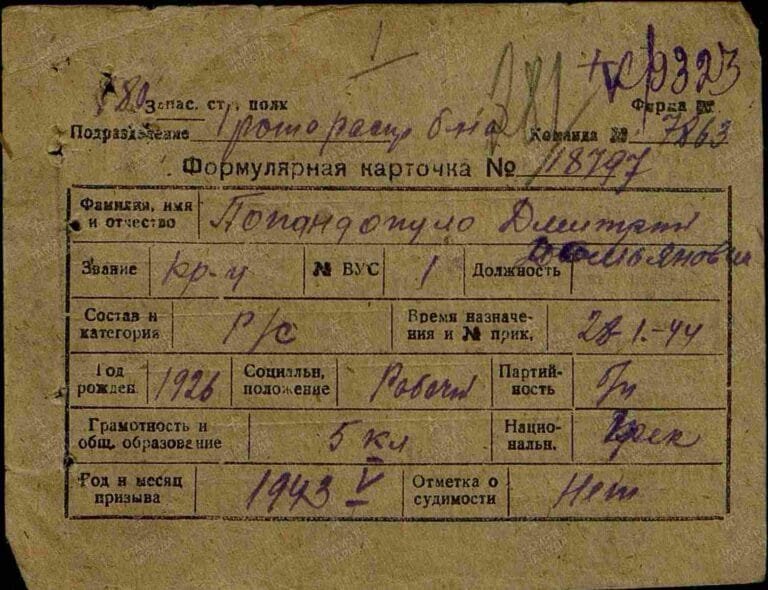 1
№ 9323
180 Запас. стр. полк
Фирка № 7863
Подразделение
Команда №
Формулярная карточка № 18797
Фамилия, имя и отчество Попандопуло Дмитрий
Звание кр-ц № ВУС 1 Должность
Состав и категория Р/с Время назначения и № прик. 28-1.-44
Год рожден. 1926 Социальн. положение Рабочий Партийность
Грамотность и общ. образование 5 кл Национальн. Грек
Год и месяц призыва 1943 V Отметка о судимости Нет